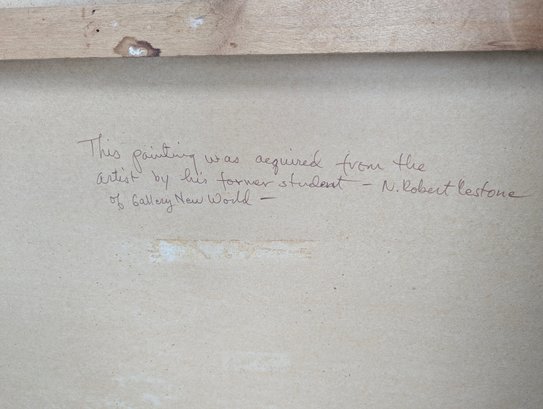 This painting was acquired from the
artist by his former student – N. Robert Cestone
of Gallery New World –